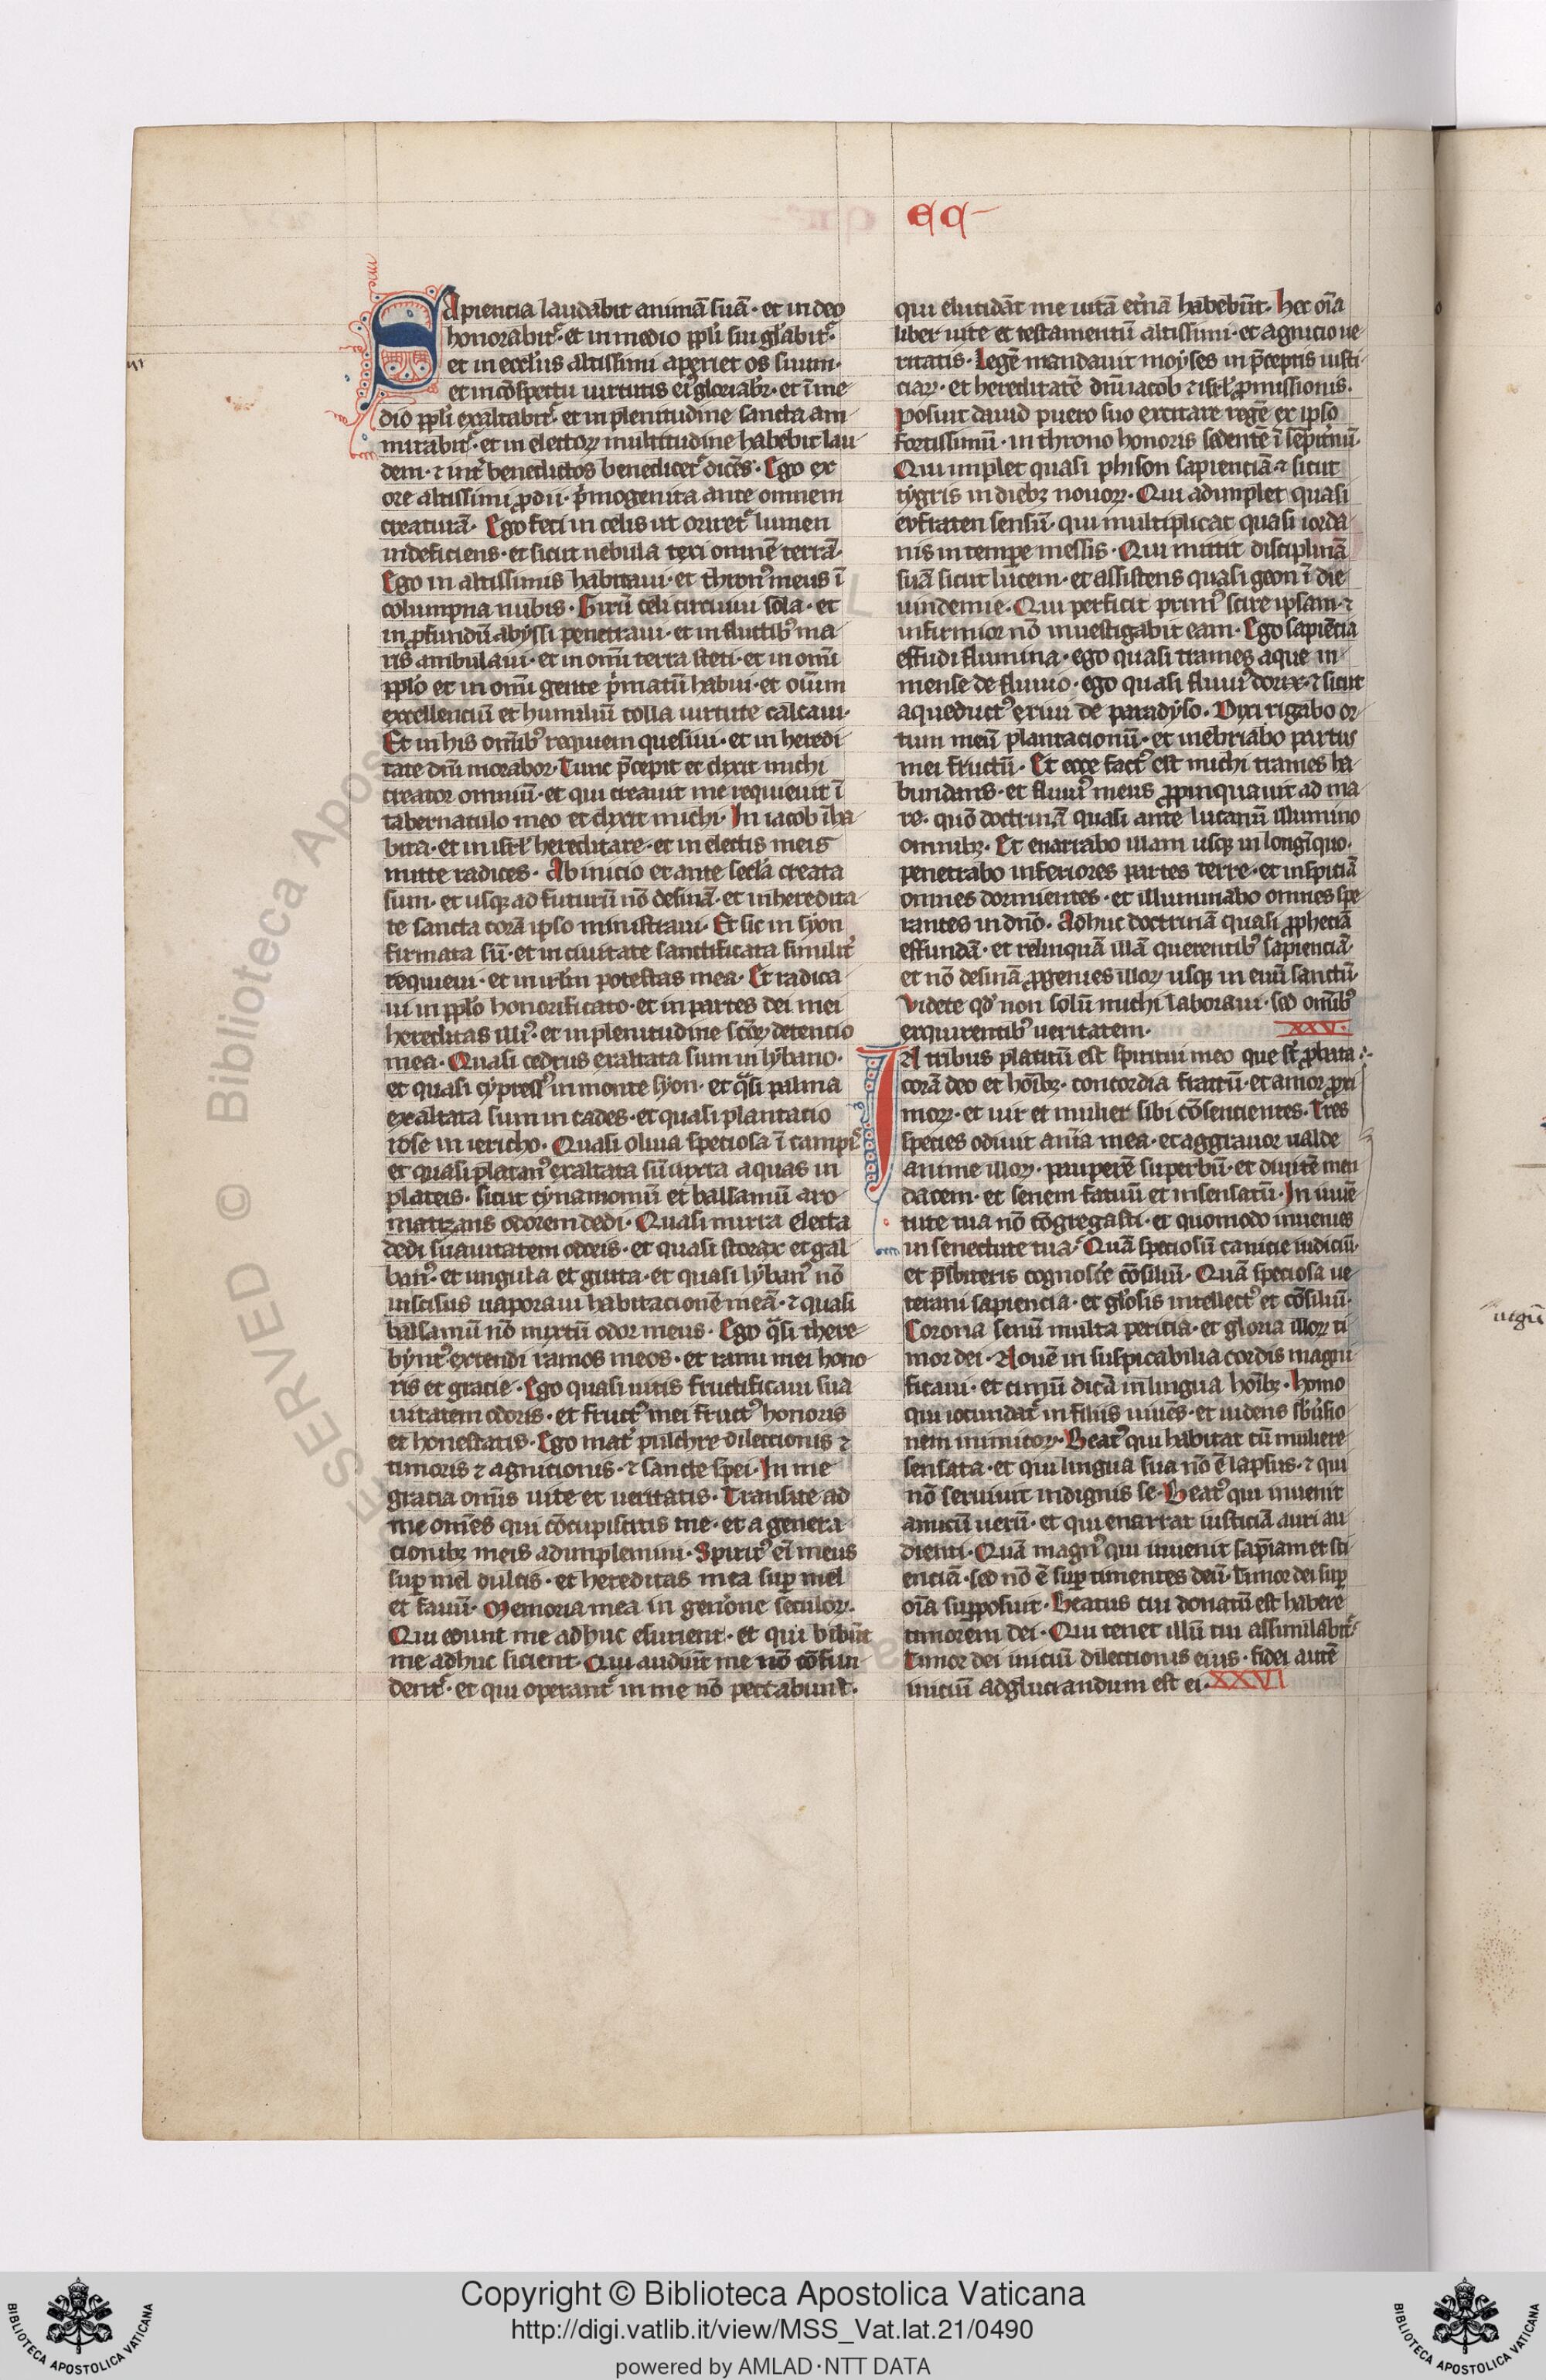 EC
SApiencia laudabit animã suã · et in deo
honorabit᷑ · et in medio ppl̃i sui gl̃abit᷑ ·
et in eccl̃iis altissimi aperiet os suum ·
et in cõspectu uirtutis ei᷒ gloriabr̃ · et ĩ me
dio ppl̃i exaltabit᷑ · et in plenitudine sancta am
mirabit᷑ · et in electoꝝ multitudine habebit lau
dem · ⁊ int̃ benedictos benedicet᷑ dicẽs · Ego ex
ore altissimi ꝓdii · p̃mogenita ante omnem
creaturã · Ego feci in celis ut oriret᷑ lumen
indeficiens · et sicut nebula texi omnẽ terrã ·
Ego in altissimis habitaui · et thron᷒ meus ĩ
columpna nubis · Girũ celi circuiui sola · et
in ꝓfundũ abyssi penetraui · et in fluctib᷒ ma
ris ambulaui · et in om̃i terra steti · et in om̃i
ppl̃o et in om̃i gente p̃matũ habui · et oium
excellenciũ et humiliũ colla uirtute calcaui ·
Et in his om̃ib᷒ requiem quesiui · et in heredi
tate dñi morabor · Tunc p̃cepit et dixit michi
creator omniũ · et qui creauit me requieuit ĩ
tabernaculo meo et dixit michi · In iacob ĩha
bita · et in isrl̃ hereditare · et in electis meis
mitte radices · Ab inicio et ante secl̃a creata
sum · et usqꝫ ad futurũ nõ desinã · et in heredita
te sancta corã ipso ministraui · Et sic in syon
firmata sũ · et in ciuitate sanctificata similit᷑
requieui · et in irl̃m potestas mea · Et radica
ui in ppl̃o honorificato · et in partes dei mei
hereditas illi᷒ · et in plenitudine sc̃oꝝ detencio
mea · Quasi cedrus exaltata sum in lybano ·
et quasi cypress᷒ in monte syon · et q̃si palma
exaltata sum in cades · et quasi plantacio
rose in iericho · Quasi oliua speciosa ĩ campis
et quasi platan᷒ exaltata sũ iuxta aquas in
plateis · sicut cynamomũ et balsamũ aro
matizans odorem dedi · Quasi mirra electa
dedi suauitatem odoris · et quasi storax et gal
ban᷒ · et ungula et gutta · et quasi lyban᷒ nõ
inscisus uaporaui habitacionẽ meã · ⁊ quasi
balsamũ nõ mixtũ odor meus · Ego q̃si there
bynt᷒ extendi ramos meos · et rami mei hono
ris et gracie · Ego quasi uitis fructificaui sua
uitatem odoris · et fruct᷒ mei fruct᷒ honoris
et honestatis · Ego mat᷑ pulchre dilectionis ⁊
timoris ⁊ agnitionis · ⁊ sancte spei · In me
gracia om̃is uite et ueritatis · Transite ad
me om̃es qui cõcupiscitis me · et a genera
cionibꝫ meis adimplemini · Spirit᷒ ei̅ meus
suꝑ mel dulcis · et hereditas mea suꝑ mel
et fauũ · Memoria mea in gener̃one seculor ·
Qui edunt me adhuc esurient · et qui bibũt
me adhuc sicient · Qui audiũt me nõ cõfun
dent᷑ · et qui operant᷑ in me nõ peccabunt ·
qui elucidãt me uitã et̃nã habebũt · Hec oĩa
liber uite et testamentũ altissimi · et agnicio ue
ritatis · Legẽ mandauit moyses in p̃ceptis iusti
ciaꝝ · et hereditatẽ dũi iacob ⁊ isrl̃ ꝓmissionis ·
Posuit dauid puero suo excitare regẽ ex ipso
fortissimũ · in throno honoris sedentẽ ĩ sẽpit̃nũ ·
Qui implet quasi phison sapienciã · ⁊ sicut
tygris in diebꝫ nouoꝝ · Qui adimplet quasi
eufraten sensũ · qui multiplicat quasi iorda
nis in tempe messis · Qui mittit disciplinã
suã sicut lucem · et assistens quasi geon ĩ die
uindemie · Qui perficit prim᷒ scire ipsam · ⁊
infirmior nõ inuestigabit eam · Ego sapiẽcia
effudi flumina · ego quasi trames aque in
mense de fluuio · ego quasi fluui᷒ dorix · ⁊ sicut
aqueduct᷒ exiui de paradyso · Dixi rigabo or
tum meũ plantacionũ · et inebriabo partus
mei fructũ · Et ecce fact᷒ est michi trames ha
bundans · et fluui᷒ meus ꝓpinquauit ad ma
re · quõ doctrinã quasi ante lucanũ illumino
omnibꝫ · Et enarrabo illam usqꝫ in longĩquo ·
penetrabo inferiores partes terre · et inspiciã
omnes dormientes · et illuminabo omnes spe
rantes in dño · Adhuc doctrinã quasi ꝓphetiã
effundã · et relinquã illã querentib᷒ sapienciã ·
et nõ desinã ꝓgenies illoꝝ usqꝫ in euũ sanctũ ·
Videte qd̃ non solũ michi laboraui · sed om̃ib᷒
exquirentib᷒ ueritatem · XXV ·
IN tribus placitũ est spiritui meo que st̃ ꝓbata
corã deo et hoĩbꝫ · concordia fratrũ · et amor ꝓxi
moꝝ · et uir et mulier sibi cõsencientes · Tres
species odiuit aĩa mea · et aggrauor ualde
anime illoꝝ · pauperẽ superbũ · et diuitẽ men
dacem · et senem fatuũ et insensatũ · In iuuẽ
tute tua nõ cõgregasti · et quomodo inuenies
in senectute tua · Quã speciosũ canicie iudiciũ ·
et p̃sbiteris cognosce᷑ cõsiliũ · Quã speciosa ue
terani sapiencia · et gl̃osis intellect᷒ et cõsiliũ ·
Corona senũ multa pericia · et gloria illoꝝ ti
mor dei · Nouẽ insuspicabilia cordis magni
ficaui · et cimũ dicã in lingua hoĩbꝫ · Homo
qui iocundat᷑ in filiis uiuẽs · et uidens sb̃uersio
nem inimicoꝝ · Beat᷒ qui habitat cũ muliere
sensata · et qui lingua sua nõ ẽ lapsus · ⁊ qui
nõ seruiuit indignis se · Beat᷒ qui inuenit
amicũ uerũ · et qui enarrat iusticiã auri au
dienti · Quã magn᷒ qui inuenit sap̃iam et sci
enciã · sed nõ ẽ suꝑ timentes deũ · Timor dei suꝑ
oĩa suꝑposuit · Beatus cui donatũ est habere
timorem dei · Qui tenet illũ cui assimilabit᷑
Timor dei iniciũ dilectionis eius · fidei autẽ
iniciũ adgluciandum est ei · XXVI
Copyright © Biblioteca Apostolica Vaticana
http://digi.vatlib.it/view/MSS_Vat.lat.21/0490
powered by AMLAD·NTT DATA
BIBLIOTECA APOSTOLICA VATICANA
BIBLIOTECA APOSTOLICA VATICANA